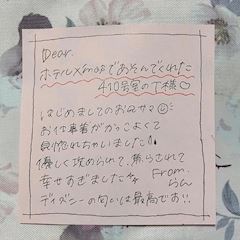 Dear.
ホテルXmasであそんでくれた
410号室のT様♡
はじめましてのお兄サマ
お仕事着がかっこよくて
見惚れちゃいました!
優しく攻められて、焦らされて
幸せすぎました
From.
らん
ディズニーの匂いは最高です!!